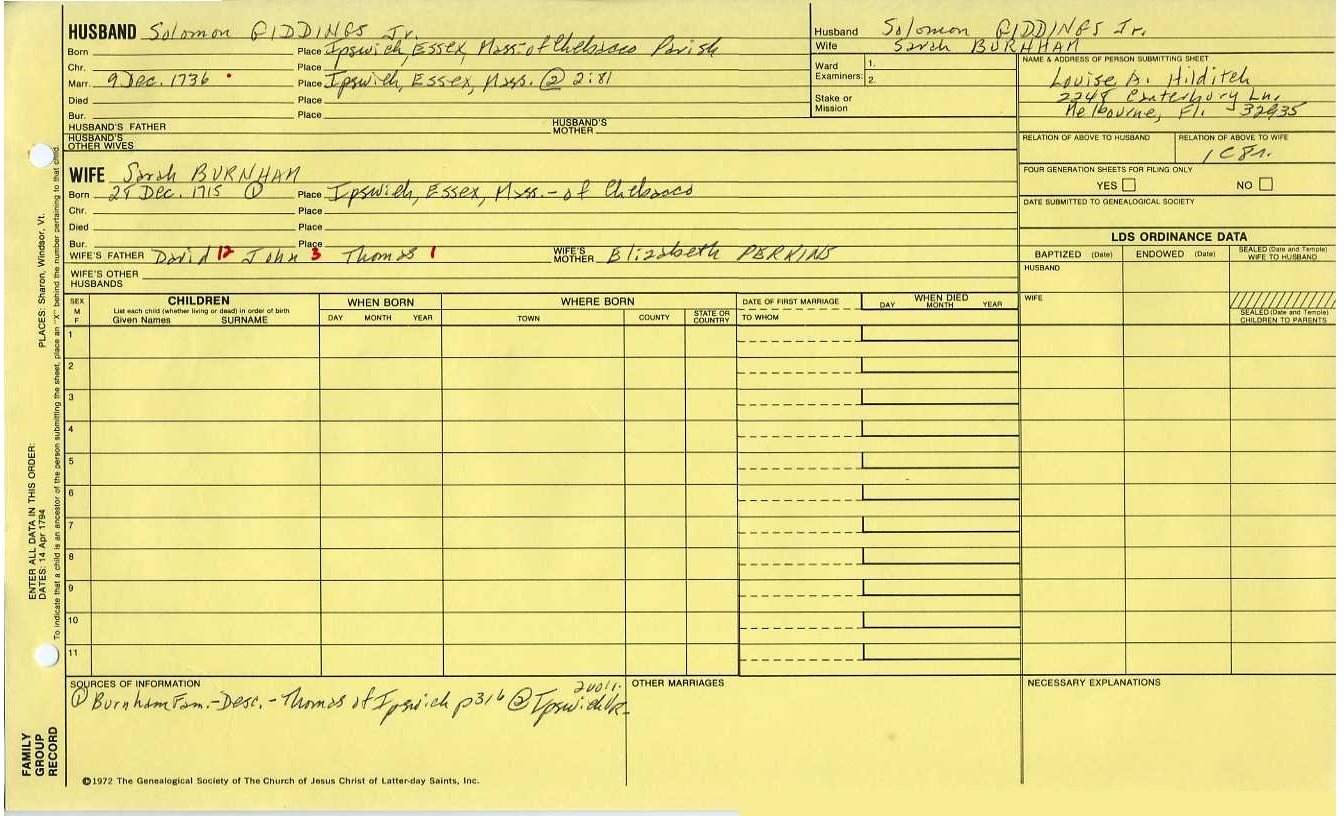 HUSBAND Solomon GIDDINGS Jr.
Born Place Ipswich, Essex, Mass-of Chebacco Parish
Chr. Place
Marr. 9 Dec. 1736 Place Ipswich, Essex, Mass. ② 2:81
Died Place
Bur. Place
HUSBAND'S FATHER HUSBAND'S MOTHER
HUSBAND'S OTHER WIVES
Husband Solomon GIDDINGS Jr.
Wife Sarah BURNHAM
Ward Examiners: 1.
2.
Stake or Mission
NAME & ADDRESS OF PERSON SUBMITTING SHEET
Louise A. Hilditch
2248 Canterbury Ln.
Melbourne, Fl. 32935
RELATION OF ABOVE TO HUSBAND RELATION OF ABOVE TO WIFE
1C8r.
FOUR GENERATION SHEETS FOR FILING ONLY
YES NO
DATE SUBMITTED TO GENEALOGICAL SOCIETY
WIFE Sarah BURNHAM
Born Dec. 1715 ① Place Ipswich, Essex, Mass.- of Chebacco
Chr. Place
Died Place
Bur. Place
WIFE'S FATHER David 12 John 3 Thomas 1 WIFE'S MOTHER Elizabeth PERKINS
WIFE'S OTHER HUSBANDS
LDS ORDINANCE DATA
BAPTIZED (Date) ENDOWED (Date) SEALED (Date and Temple) WIFE TO HUSBAND
HUSBAND
WIFE
SEALED (Date and Temple) CHILDREN TO PARENTS
SEX M F
CHILDREN
List each child (whether living or dead) in order of birth
Given Names SURNAME
WHEN BORN
DAY MONTH YEAR
WHERE BORN
TOWN COUNTY STATE OR COUNTRY
DATE OF FIRST MARRIAGE
TO WHOM
WHEN DIED
DAY MONTH YEAR
1
2
3
4
5
6
7
8
9
10
11
SOURCES OF INFORMATION
① Burnham Fam.-Desc.-Thomas of Ipswich p316 ② Ipswich VR-
OTHER MARRIAGES
NECESSARY EXPLANATIONS
©1972 The Genealogical Society of The Church of Jesus Christ of Latter-day Saints, Inc.
FAMILY GROUP RECORD
ENTER ALL DATA IN THIS ORDER:
DATES: 14 Apr 1794 PLACES: Sharon, Windsor, Vt.
To indicate that a child is an ancestor of the person submitting the sheet, place an "X" behind the number pertaining to that child.